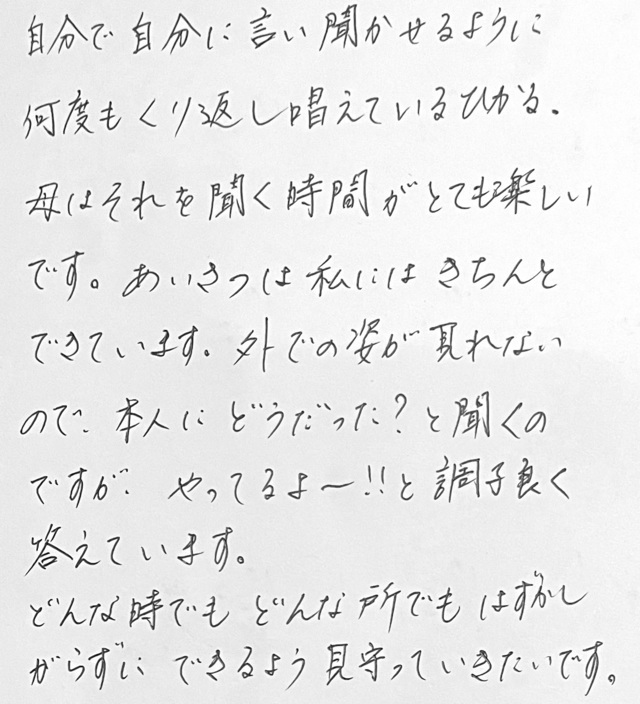 自分で自分に言い聞かせるように
何度もくり返し唱えているひかる.
母はそれを聞く時間がとても楽しい
です。あいさつは私にはきちんと
できています。外での姿が見れない
ので、本人にどうだった?と聞くの
ですが、やってるよ〜!!と調子良く
答えています。
どんな時でもどんな所でもはずかし
がらずにできるよう見守っていきたいです。